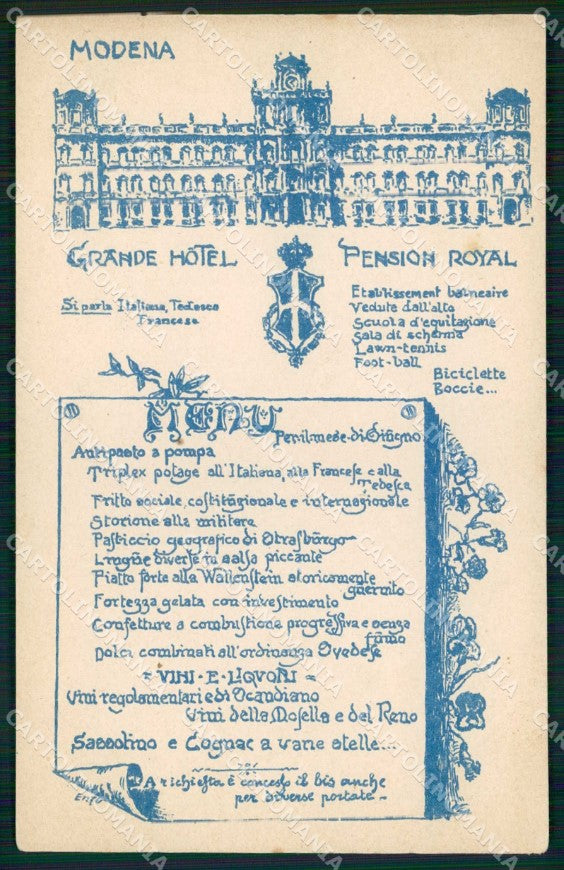 MODENA
GRANDE HÔTEL PENSION ROYAL
Si parla Italiano, Tedesco
Francese
Etablissement balneaire
Vedute dall'alto
Scuola d'equitazione
Sala di scherma
Lawn-tennis
Foot-ball
Biciclette
Boccie...
MENU
Per il mese di Giugno
Antipasto a pompa
Triplex potage all'Italiana, alla Francese e alla
Tedesca
Fritto sociale, costituzionale e internazionale
Storione alla militare
Pasticcio geografico di Strasburgo
Lingue diverse in salsa piccante
Piatto forte alla Wallenstein storicamente
guernito
Fortezza gelata con investimento
Confetture a combustione progressiva e senza
fumo
Dolci combinati all'ordinanza Svedese
VINI E LIQVORI
Vini regolamentari e di Scandiano
Vini della Mosella e del Reno
Sassolino e Cognac a varie stelle...
A richiesta è concesso il bis anche
per diverse portate -
CARTOLINOMANIA